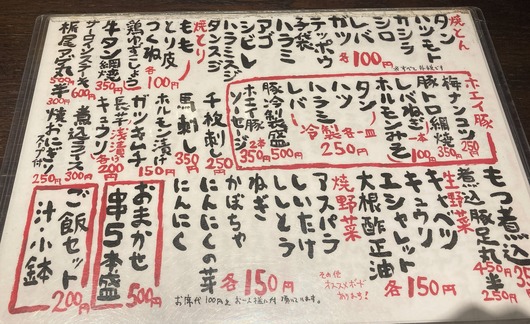 焼とん
タン
ハツモト
カシラ
シロ
レバ
ガツ
テッポウ
子袋
ハラミ
シビレ
アゴ
ハラミスジ
タンスジ
各100円
※すべて1本です
焼とり
もも
とり皮
つくね
各100円
鶏ゆきしょう
牛タン網焼
350円
サーロインステーキ
600円
栃尾アゲ丸
500円
半300円
ホエイ豚
梅ナンコツ
250円
豚トロ網焼
350円
レバねぎ
1本100円
ホルモンみそ
タン
ハツ
ハラミ
レバ
冷製各一皿
250円
豚冷製盛
500円
ホエイ豚ソーセージ
2本350円
千枚刺し
250円
馬刺し
350円
ホルモン漬け
150円
ガツキムチ
長芋浅漬け
キュウリ浅漬け
各200円
煮込ライス
300円
焼おにぎり
スープ付
250円
もつ煮込
350円
煮込豚足丸
450円
半250円
生野菜
キャベツ
キュウリ
エシャレット
大根酢正油
各150円
焼野菜
アスパラ
しいたけ
ししとう
ねぎ
かぼちゃ
にんにくの芽
にんにく
各150円
その他
オススメボード
あります!
おまかせ
串5本盛
500円
ご飯セット
汁小鉢
200円
お席代100円をお一人様に付頂ってます。